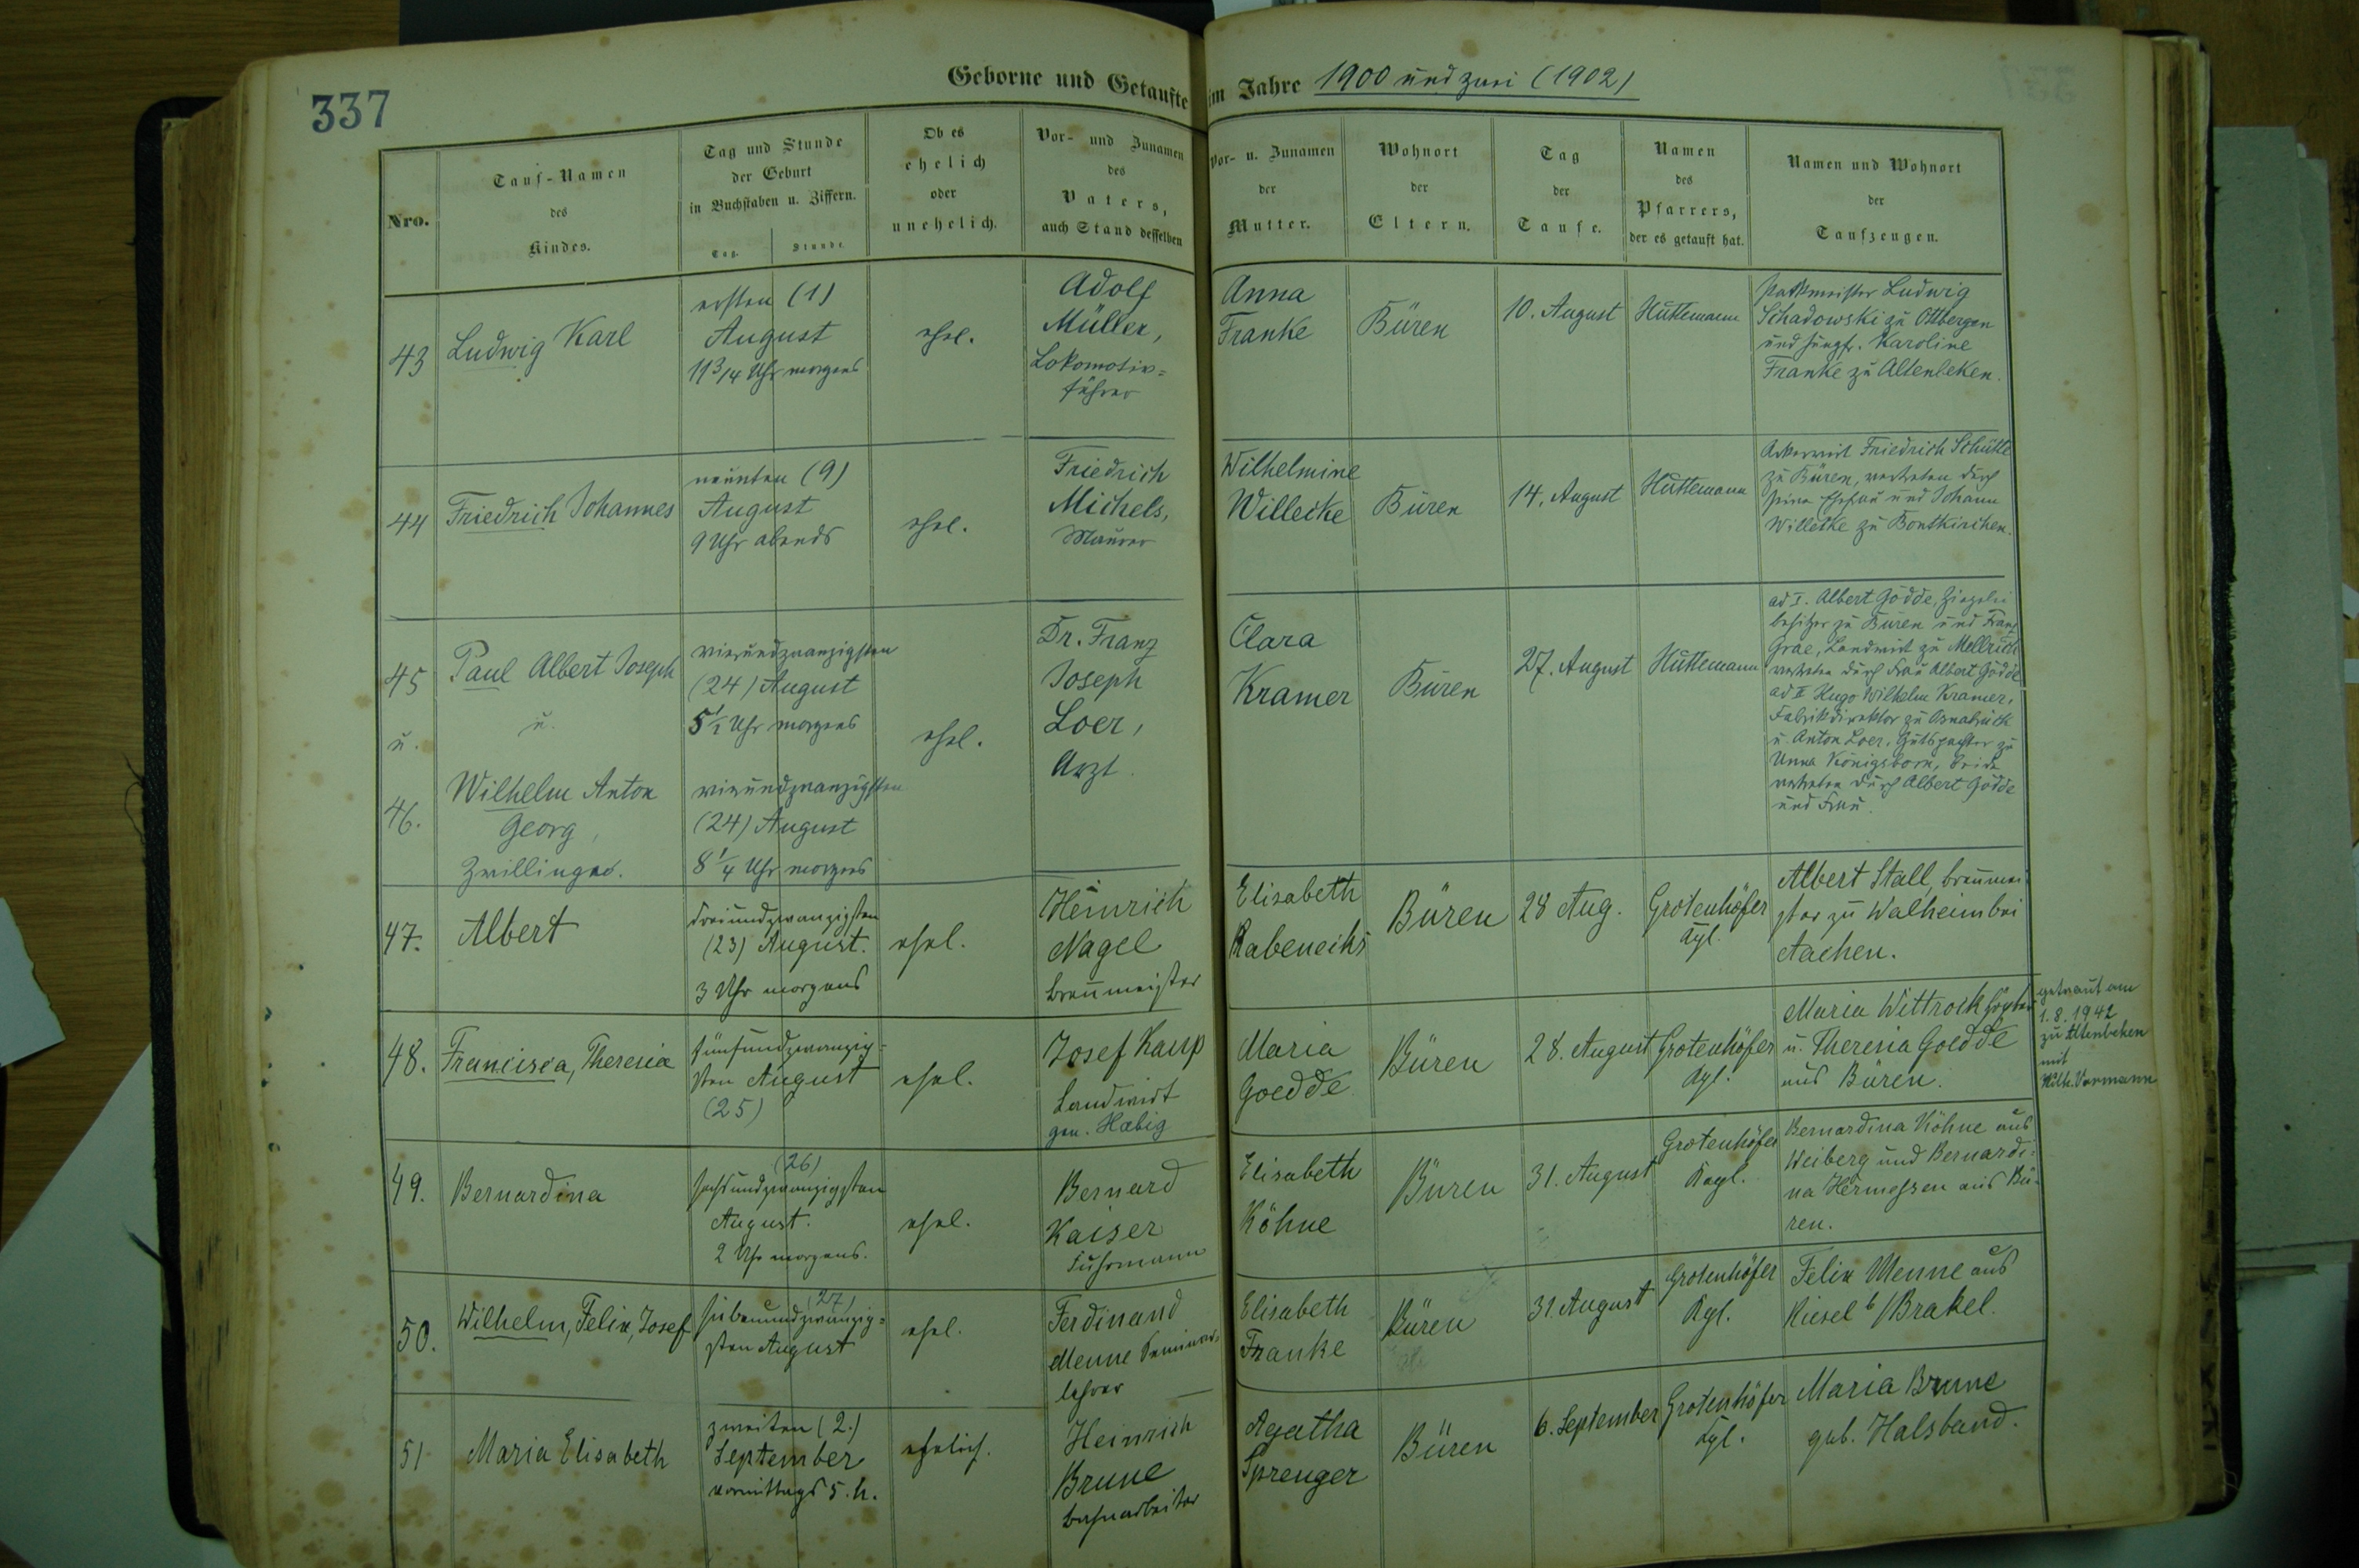 337
Geborne und Getaufte im Jahre 1900 und zwei (1902)
Nro.
Tauf-Namen
des
Kindes.
Tag und Stunde
der Geburt
in Buchstaben u. Ziffern.
Tag.
Stunde.
Ob es
ehelich
oder
unehelich.
Vor- und Zunamen
des
Vaters,
auch Stand desselben
Vor- u. Zunamen
der
Mutter.
Wohnort
der
Eltern.
Tag
der
Taufe.
Namen
des
Pfarrers,
der es getauft hat.
Namen und Wohnort
der
Taufzeugen.
43
Ludwig Karl
ersten (1)
August
11 3/4 Uhr morgens
ehel.
Adolf
Müller,
Lokomotiv=
führer
Anna
Franke
Büren
10. August
Hüttemann
Packmeister Ludwig
Schadowski zu Ottbergen
und Jungfr. Karoline
Franke zu Altenbeken.
44
Friedrich Johannes
neunten (9)
August
9 Uhr abends
ehel.
Friedrich
Michels,
Maurer
Wilhelmine
Willecke
Büren
14. August
Hüttemann
Ackerwirt Friedrich Schütte
zu Büren, vertreten durch
seine Ehefrau und Johann
Willecke zu Bontkirchen.
45
Paul Albert Joseph
vierundzwanzigsten
(24) August
5 1/2 Uhr morgens
u.
u.
46.
Wilhelm Anton
Georg,
Zwillinge.
vierundzwanzigsten
(24) August
8 1/4 Uhr morgens
ehel.
Dr. Franz
Joseph
Loer,
Arzt.
Clara
Kramer
Büren
27. August
Hüttemann
ad I. Albert Gödde, Ziegelei
besitzer zu Büren und Franz
Grae, Landwirt zu Mellrich
vertreten durch Frau Albert Gödde
ad II Hugo Wilhelm Kramer,
Fabrikdirektor zu Osnabrück
u. Anton Loer, Gutspächter zu
Unna Königsborn, beide
vertreten durch Albert Gödde
und Frau.
47.
Albert
dreiundzwanzigsten
(23) August.
3 Uhr morgens
ehel.
Heinrich
Nagel
Braumeister
Elisabeth
Büren
28 Aug.
Grotenhöfer
Kgl.
Albert Stall, Braumei
ster zu Walheim bei
Aachen.
48.
Francisca, Theresia
fünfundzwanzig=
sten August
(25)
ehel.
Josef Kaup
Landwirt
gen. Hæbig
Maria
Goedde
Büren
28. August
Grotenhöfer
Kgl.
Maria Wittrock
u. Theresia Goedde
aus Büren.
getraut am
1.8.1942
zu Altenbeken
mit
Wilh. Vormann
49.
Bernardina
(26)
sechsundzwanzigsten
August.
2 Uhr morgens.
ehel.
Bernard
Kaiser
Fuhrmann
Elisabeth
Köhne
Büren
31. August
Grotenhöfer
Kapl.
Bernardina Köhne aus
Weiberg und Bernardi=
na Hermessen aus Bü-
ren.
50.
Wilhelm, Felix, Josef
(27)
siebenundzwanzig=
sten August
ehel.
Ferdinand
Menne Seminar-
lehrer
Elisabeth
Franke
Büren
31. August
Grotenhöfer
Kpl.
Felix Menne aus
Riesel b/Brakel.
51
Maria Elisabeth
zweiten (2.)
September
vormittags 5. h.
ehelich.
Heinrich
Brune
Bahnarbeiter
Agatha
Sprenger
Büren
6. September
Grotenhöfer
Kpl.
Maria Brune
geb. Halsband.